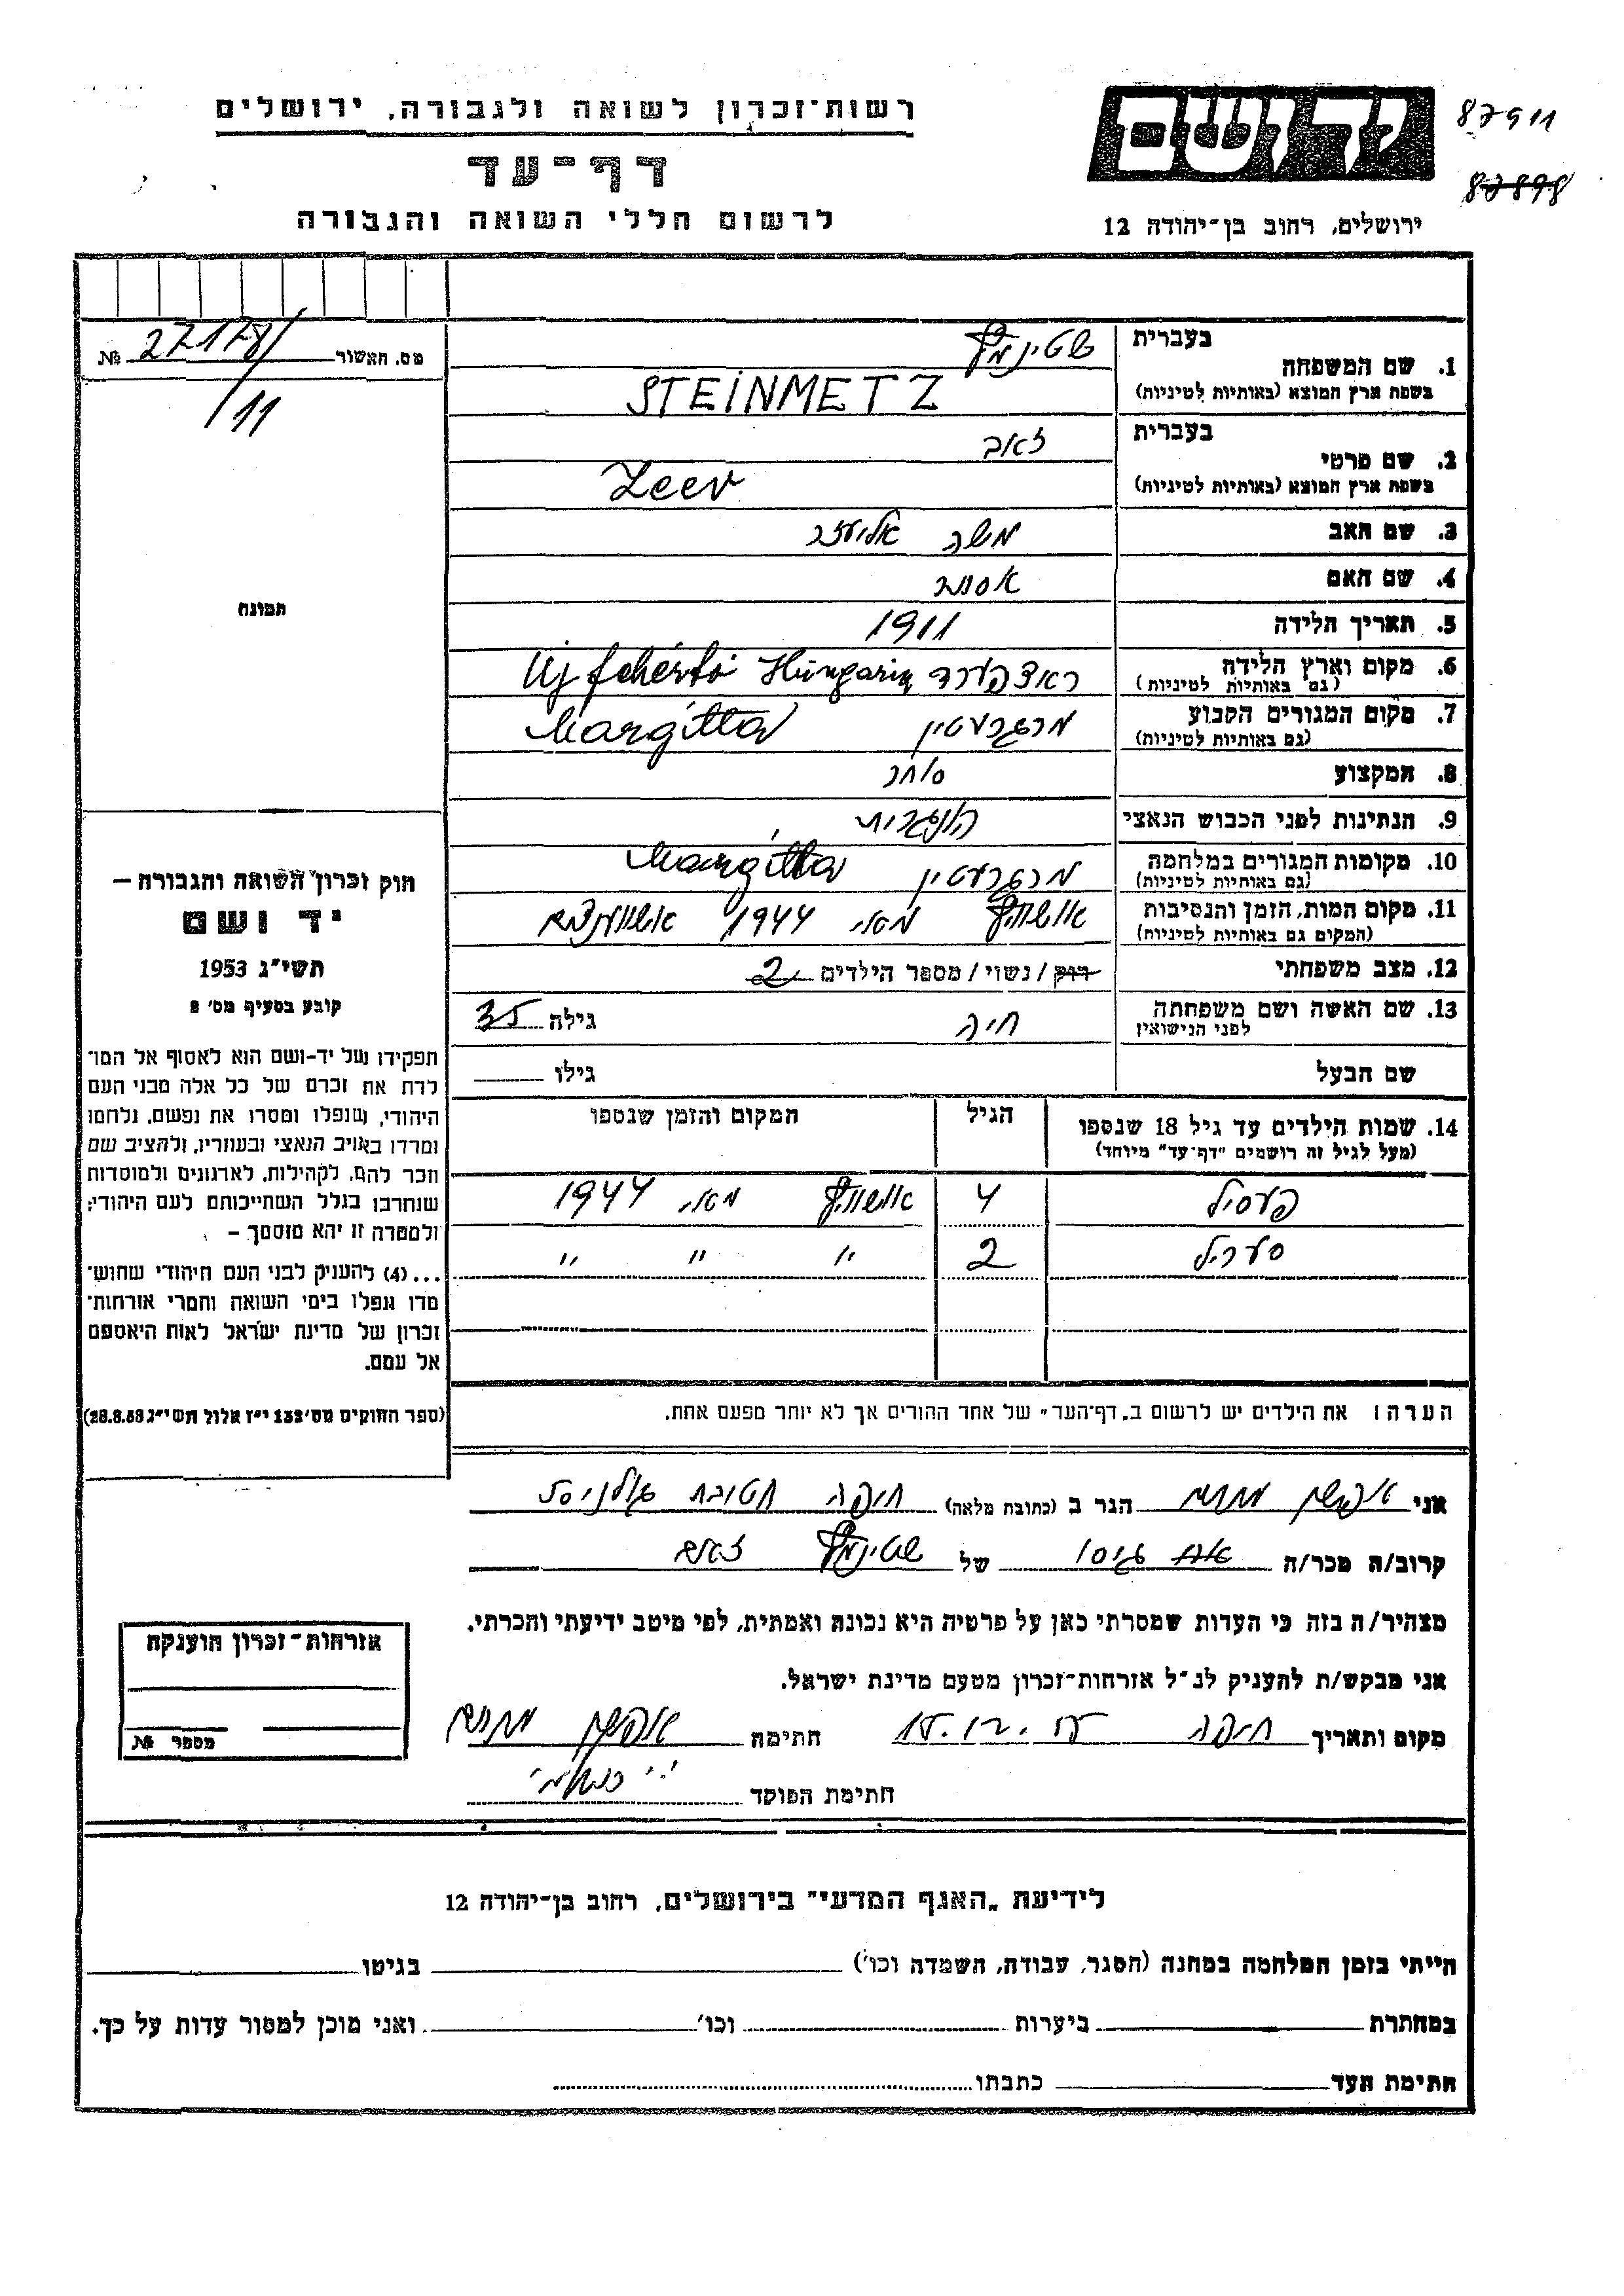 רשות־זכרון לשואה ולגבורה, ירושלים
דף־עד
לרשום חללי השואה והגבורה
יד ושם
ירושלים, רחוב בן־יהודה 12
87911
87898
מס. האשור № 27178/
/11
תמונה
חוק זכרון השואה והגבורה –
יד ושם
תשי״ג 1953
קובע בסעיף מס׳ 2
תפקידו של יד-ושם הוא לאסוף אל המו־
לדת את זכרם של כל אלה מבני העם
היהודי, שנפלו ומסרו את נפשם, נלחמו
ומרדו באויב הנאצי ובעוזריו, ולהציב שם
וזכר להם, לקהילות, לארגונים ולמוסדות
שנחרבו בגלל השתייכותם לעם היהודי;
ולמטרה זו יהא מוסמך –
...(4) להעניק לבני העם היהודי שהוש־
מדו ונפלו בימי השואה והמרי אזרחות־
זכרון של מדינת ישראל לאות היאספם
אל עמם.
(ספר החוקים מס׳ 132 י״ז אלול תשי״ג 28.8.53)
בעברית שטינמץ
1. שם המשפחה
בשפת ארץ המוצא (באותיות לטיניות) STEINMETZ
בעברית זאב
2. שם פרטי
בשפת ארץ המוצא (באותיות לטיניות) Zeev
3. שם האב משה אליעזר
4. שם האם אסתר
5. תאריך הלידה 1911
6. מקום וארץ הלידה ראצפערד Hungaria Újfehértó
(גם באותיות לטיניות)
7. מקום המגורים הקבוע מרגרעטין Margitta
(גם באותיות לטיניות)
8. המקצוע סוחר
9. הנתינות לפני הכבוש הנאצי הונגרית
10. מקומות המגורים במלחמה מרגרעטין Margitta
(גם באותיות לטיניות)
11. מקום המות, הזמן והנסיבות אושויץ מאי 1944
(המקום גם באותיות לטיניות)
12. מצב משפחתי רוק / נשוי / מספר הילדים 2
13. שם האשה ושם משפחתה חיה גילה 35
לפני הנישואין
שם הבעל גילו
14. שמות הילדים עד גיל 18 שנספו הגיל המקום והזמן שנספו
(מעל לגיל זה רושמים ״דף־עד״ מיוחד)
פעסיל 4 אושויץ מאי 1944
סעריל 2 " " "
הערה: את הילדים יש לרשום ב„דף־העד״ של אחד ההורים אך לא יותר מפעם אחת.
אני הגר ב (כתובת מלאה) חיפה חטיבת גולני
קרוב/ה מכר/ה גיסו של שטינמץ זאב
מצהיר/ה בזה כי העדות שמסרתי כאן על פרטיה היא נכונה ואמתית, לפי מיטב ידיעתי והכרתי.
אני מבקש/ת להעניק לנ״ל אזרחות־זכרון מטעם מדינת ישראל.
מקום ותאריך חיפה חתימה
חתימת הפוקד
אזרחות־זכרון הוענקה
מספר №
לידיעת „האגף המדעי״ בירושלים, רחוב בן־יהודה 12
הייתי בזמן המלחמה במחנה (הסגר, עבודה, השמדה וכו׳) בגיטו
במחתרת ביערות וכו׳ ואני מוכן למסור עדות על כך.
חתימת העד כתבתו